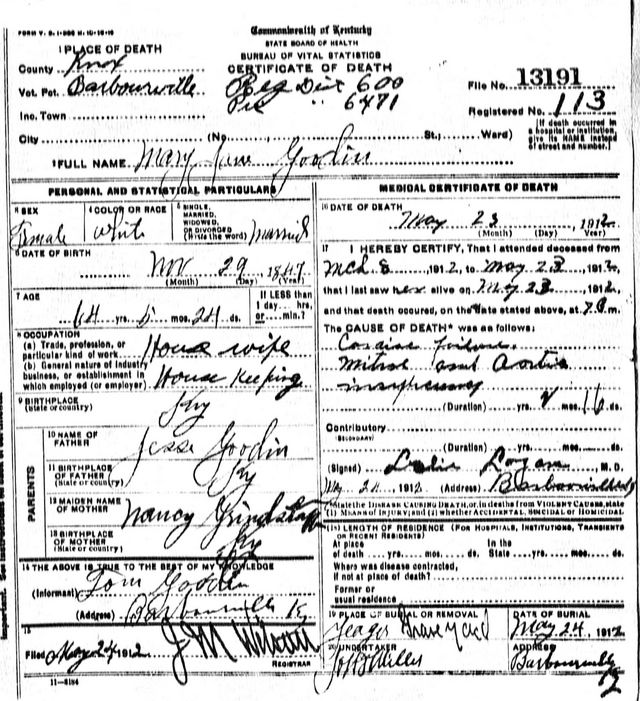 FORM V. S. 1-300 M. 10-16-10
Commonwealth of Kentucky
STATE BOARD OF HEALTH
BUREAU OF VITAL STATISTICS
CERTIFICATE OF DEATH
1 PLACE OF DEATH
County Knox
Vot. Pct. Barbourville Reg Dist 600
Pri " 6471
Inc. Town
File No. 13191
Registered No. 113
[If death occurred in
a hospital or institution,
give its NAME instead
of street and number.]
City (No. St.; Ward)
2 FULL NAME Mary Jane Goodin
PERSONAL AND STATISTICAL PARTICULARS
3 SEX
Female
4 COLOR OR RACE
White
5 SINGLE,
MARRIED,
WIDOWED,
OR DIVORCED
(Write the word) Married
6 DATE OF BIRTH
Nov 29 1847
(Month) (Day) (Year)
7 AGE
64 yrs. 5 mos. 24 ds.
If LESS than
1 day, hrs.
or min.?
8 OCCUPATION
(a) Trade, profession, or
particular kind of work House wife
(b) General nature of industry
business, or establishment in
which employed (or employer) House Keeping
9 BIRTHPLACE
(State or country) Ky
PARENTS
10 NAME OF
FATHER Jesse Goodin
11 BIRTHPLACE
OF FATHER
(State or country) Ky
12 MAIDEN NAME
OF MOTHER Nancy Grindstaff
13 BIRTHPLACE
OF MOTHER
(State or country) Ky
14 THE ABOVE IS TRUE TO THE BEST OF MY KNOWLEDGE
(Informant) Tom Goodin
(Address) Barbourville Ky
15
Filed May 24 1912 J M Wilson
REGISTRAR
11-8184
MEDICAL CERTIFICATE OF DEATH
16 DATE OF DEATH
May 23 1912
(Month) (Day) (Year)
17 I HEREBY CERTIFY, That I attended deceased from
Mch 8 1912, to May 23 1912,
that I last saw her alive on May 23 1912,
and that death occured, on the date stated above, at m.
The CAUSE OF DEATH* was as follows:
Cardiac failure
Mitral and Aortic
insufficiency
(Duration) yrs. 2 mos. 16 ds.
Contributory
(SECONDARY)
(Duration) yrs. mos. ds.
(Signed) Leslie Logan M. D.
May 24, 1912 (Address) Barbourville Ky
*State the DISEASE CAUSING DEATH, or, in deaths from VIOLENT CAUSES, state
(1) MEANS OF INJURY; and (2) whether ACCIDENTAL, SUICIDAL or HOMICIDAL.
18 LENGTH OF RESIDENCE (FOR HOSPITALS, INSTITUTIONS, TRANSIENTS
OR RECENT RESIDENTS)
At place In the
of death yrs. mos. ds. State yrs. mos. ds.
Where was disease contracted,
if not at place of death?
Former or
usual residence
19 PLACE OF BURIAL OR REMOVAL
Grave Yard
DATE OF BURIAL
May 24 1912
20 UNDERTAKER
Miller
ADDRESS
Barbourville